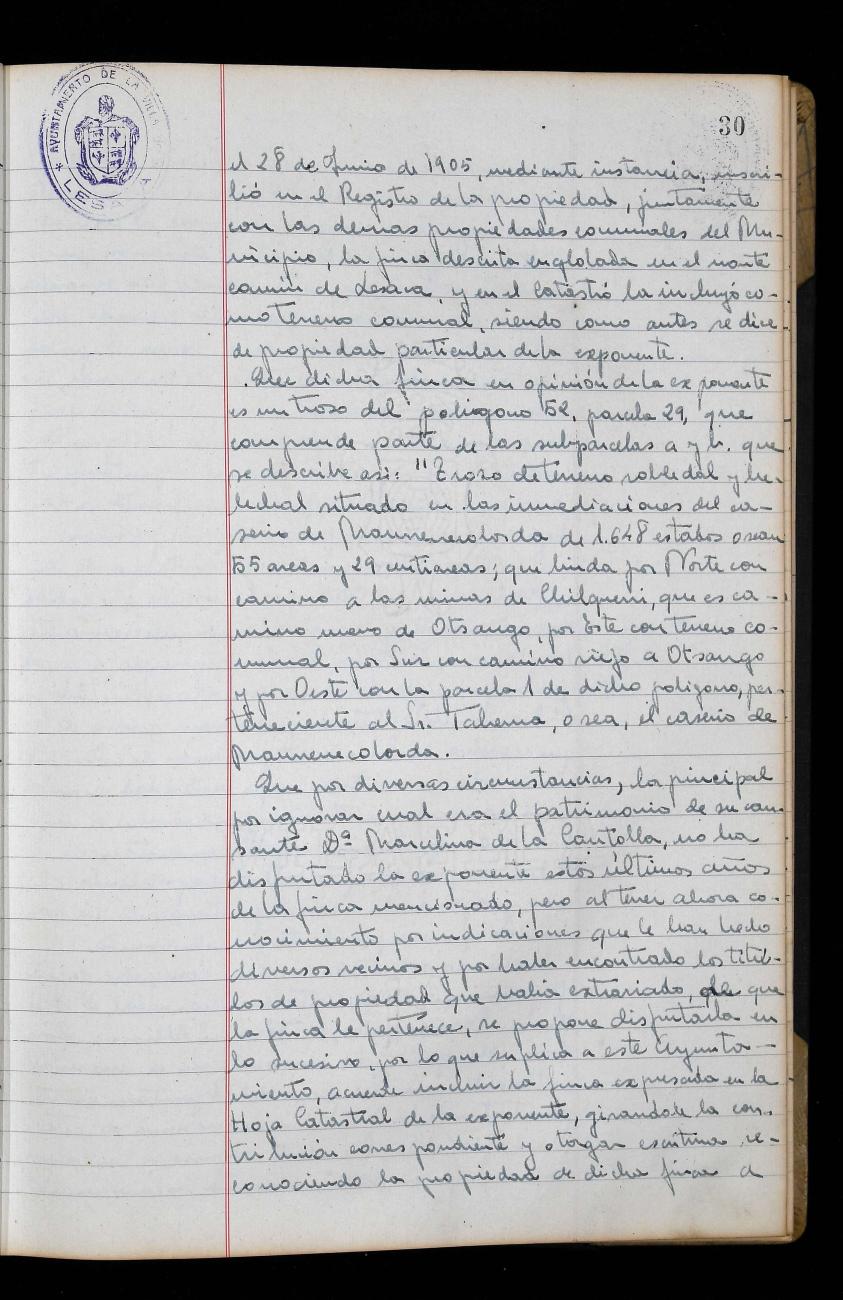 AYUNTAMIENTO DE LA VILLA
LESA A
30
el 28 de Junio de 1905, mediante instancia, inscri-
bió en el Registro de la propiedad, juntamente
con las demas propiedades comunales del Mu-
nicipio, la finca descrita englobada en el monte
comun de Lesaca, y en el Catastro la incluyó co-
mo terreno comunal, siendo como antes se dice
de propiedad particular de la exponente.
Que dicha finca en opinión de la exponente
es un trozo del poligono 52, parcela 29, que
comprende parte de las subparcelas a y b. que
se describe asi: "Trozo de terreno robledal y he-
lechal situado en las inmediaciones del ca-
serio de de 1.648 estados o sean
55 areas y 29 centiareas; que linda por Norte con
camino a las minas de que es ca-
mino nuevo de Otsango, por Este con terreno co-
munal, por Sur con camino viejo a Otsango
y por Oeste con la parcela 1 de dicho poligono, per-
teneciente al Sr. Taberna, o sea, el caserio de

Que por diversas circunstancias, la principal
por ignorar cual era el patrimonio de su cau-
sante Dª Marcelina de la Cantolla, no ha
disfrutado la exponente estos últimos años
de la finca mencionado, pero al tener ahora co-
nocimiento por indicaciones que le han hecho
diversos vecinos y por haber encontrado los títu-
los de propiedad que habia extraviado, de que
la finca le pertenece, se propone disfrutarla en
lo sucesivo, por lo que suplica a este Ayunta-
miento, acuerde incluir la finca expresada en la
Hoja Catastral de la exponente, girandole la con-
tribución correspondiente y otorgar escritura re-
conociendo la propiedad de dicha finca a